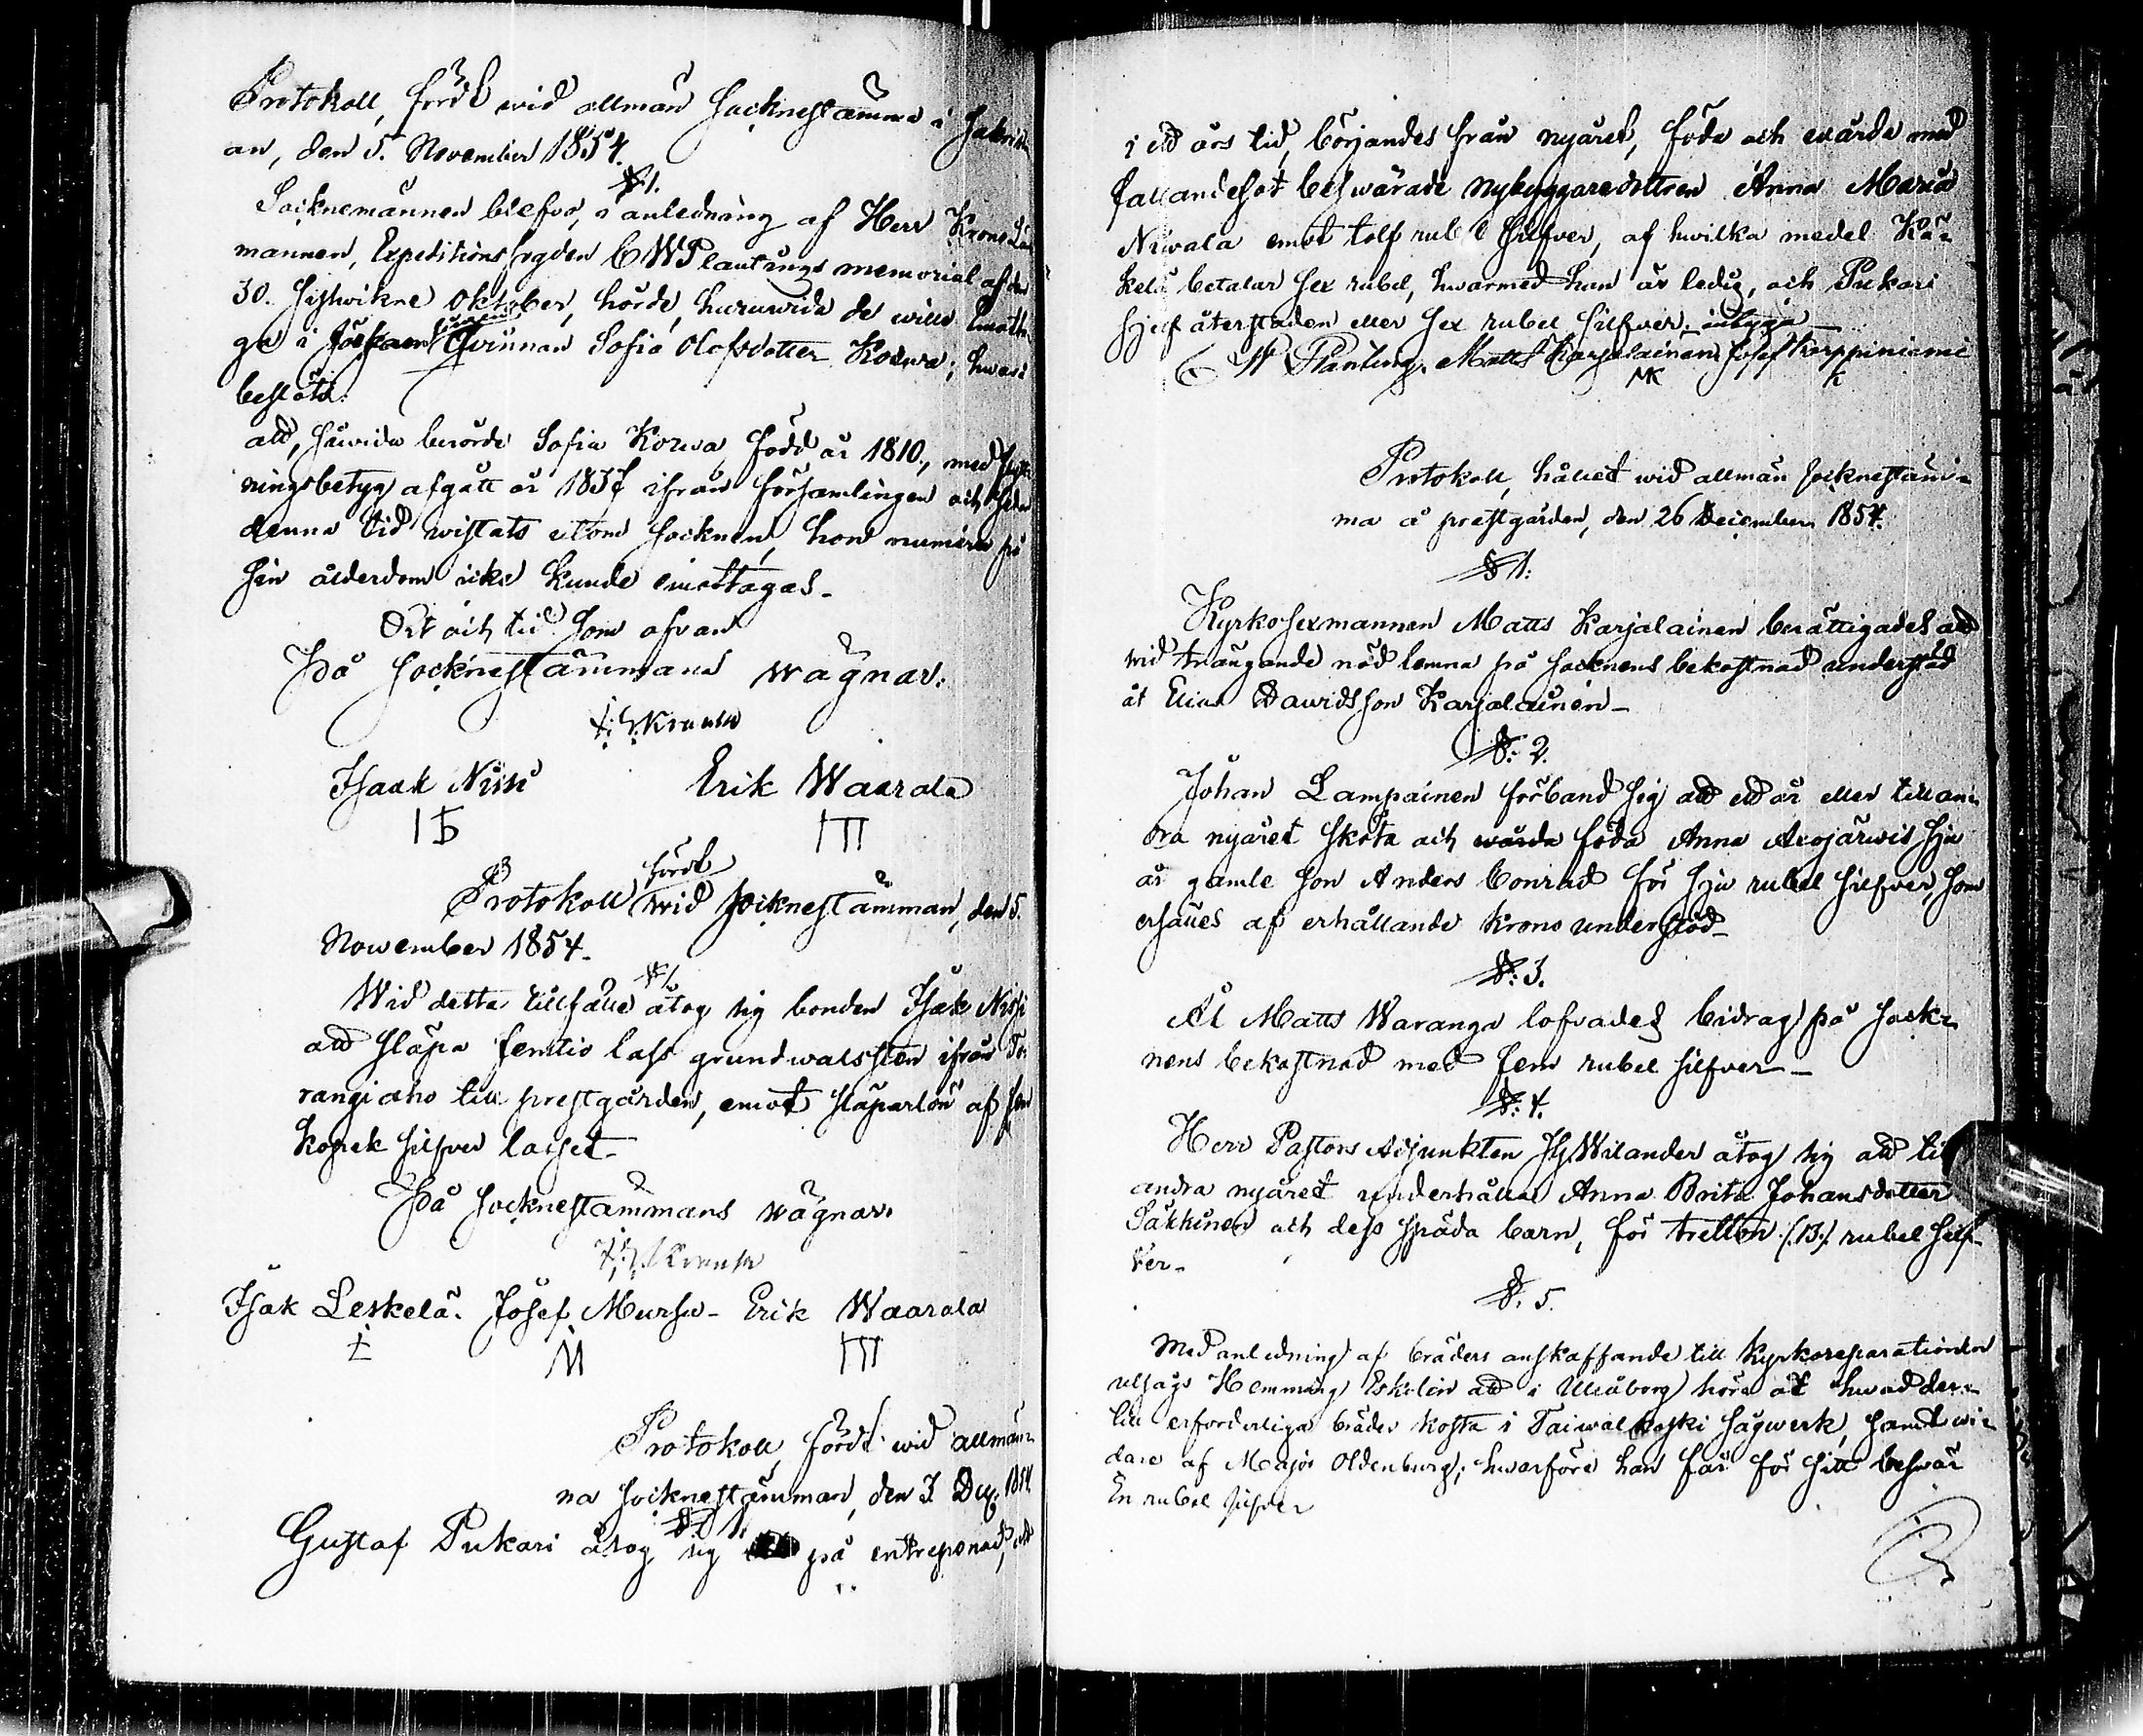 Protokoll, fördt wid allmän Socknestämma i Sakristi
an, den 5. November 1854.
§ 1.
Socknemännen blefvo, i anledning af Herr Krono Län
mannen, Expeditionsfogden C W Plantings memorial af den
30. sistwikne Oktober, hörde, huruwida de wille emotta
ga i Socknen qwinnan Sofia Olofsdotter Korwa; hwari
beslöts:
att, såwida berörde Sofia Korwa född år 1810, med flytt
ningsbetyg afgått år 1837 ifrån församlingen och sedan
denna tid wistats utom socknen, hon numera på
sin ålderdom icke kunde emottagas.
Ort och tid som ofvan
På Socknestämmans wägnar:
Isaak Nissi Erik Waarala
Protokoll fördt wid Socknestämman, den 5.
November 1854.
§ 1
Wid detta tillfälle åtog sig bonden Isak Nissi
att släpa femtio lass grundwalssten ifrån To
rangiaho till prestgården, emot släparlön af fem
kopek silfver lasset.
På Socknestämmans wägnar.
Isak Leskelä. Josef Mursu - Erik Waarala
M
Protokoll, fördt wid allmän
na Socknestämman, den 3. Dec. 1854.
§ 1.
Gustaf Pukari åtog sig på entreprenad, att
i ett års tid, börjandes från nyåret, föda och wårda med
fallandesot beswärade nybyggaredottren Anna Maria
Niwala emot tolf rubel silfver, af hwilka medel Kä-
kelä betalar sex rubel, hwarmed han är ledig, och Pukari
sjelf återstoden eller sex rubel silfver. intyga
C W Planting. Matts Karjalainen Josef Karppiniemi
MK K
Protokoll, hållet wid allmän socknestäm-
ma å prestgården, den 26 December 1854.
§ 1:
Kyrkosexmannen Matts Karjalainen berättigades att
wid trängande nöd lemna på socknens bekostnad understöd
åt Elias Dawidsson Karjalainen
§: 2.
Johan Lampainen förband sig att ett år eller till an-
dra nyåret sköta och wårda föda Anna Aiojärwis sju
år gamle son Anders Conrad för sju rubel silfver, som
ersättes af erhållande Krono understöd
§: 3.
Åt Matts Waranga lofvades bidrag på sock-
nens bekostnad med fem rubel silfver
§: 4.
Herr Pastors Adjunkten Wilander åtog sig att til
andra nyåret underhålla Anna Brita Johansdotter
Säkkinen och dess späda barn, för tretton (13.) rubel silf-
ver.
§. 5.
Med anledning af bräders anskaffande till kyrkoreparationen
utsågs Hemming Eskelin att i Uleåborg höra åt hwad der-
till erforderliga bräder kosta i Taiwalkoski sågwerk, samt wi-
dare af Major Oldenburg; hwarföre han får för sitt beswär
En rubel silfver